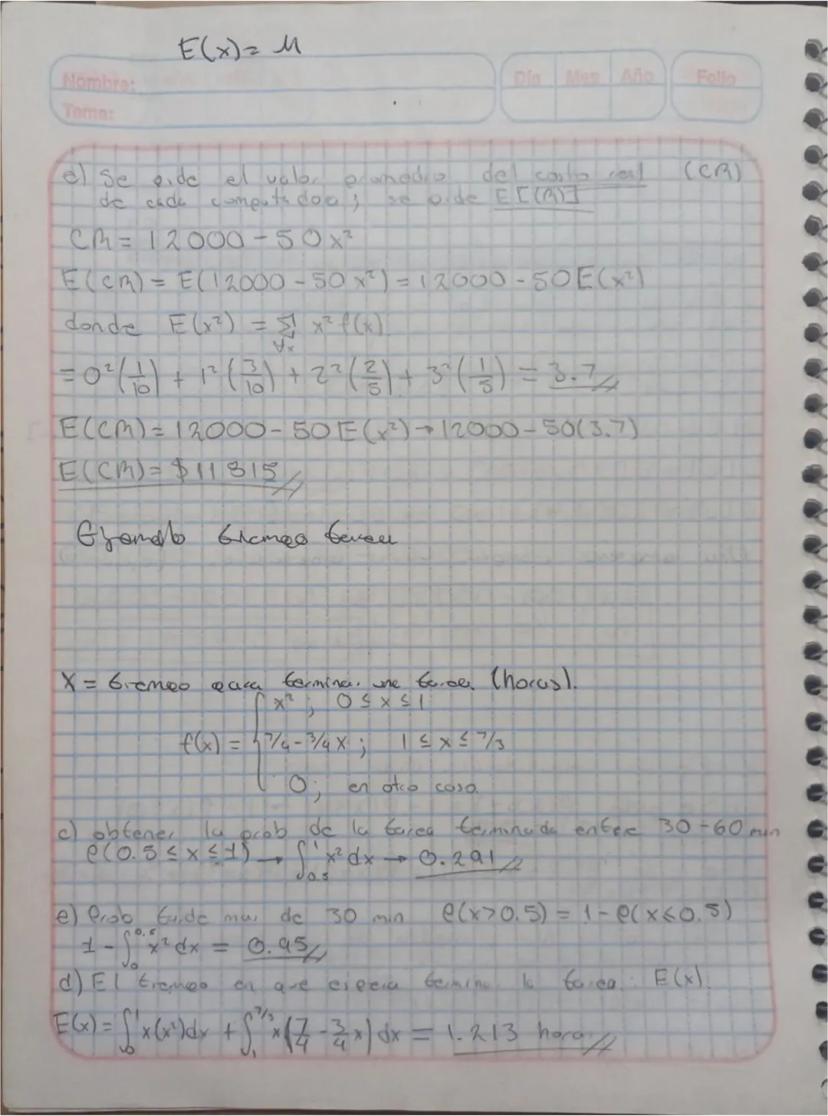 E(x) = μ
Nombre:
Tema:
Día Mes Año
Folio
e) Se pide el valor promedio del costo real (CR)
de cada computadora; se pide E[CR]
CR = 12000 - 50x²
E(CR) = E(12000 - 50x²) = 12000 - 50E(x²)
donde E(x²) = Σ x² f(x)
∀x
= 0²(1/10) + 1²(3/10) + 2²(2/5) + 3²(1/5) = 3.7
E(CR) = 12000 - 50E(x²) → 12000 - 50(3.7)
E(CR) = $11815
Ejemplo tiempo tarea
X = tiempo para terminar una tarea (horas).
x² ; 0 ≤ x ≤ 1
f(x) = { 7/4 - 3/4 x ; 1 ≤ x ≤ 7/3
0 ; en otro caso
c) obtener la prob de la tarea terminada entre 30-60 min
P(0.5 ≤ x ≤ 1) → ∫0.5^1 x² dx → 0.291
e) Prob tarde mas de 30 min P(x>0.5) = 1 - P(x≤0.5)
1 - ∫0^0.5 x² dx = 0.95
d) El tiempo en que espera termine la tarea: E(x)
E(x) = ∫0^1 x(x²)dx + ∫1^7/3 x(7/4 - 3/4 x) dx = 1.213 hora